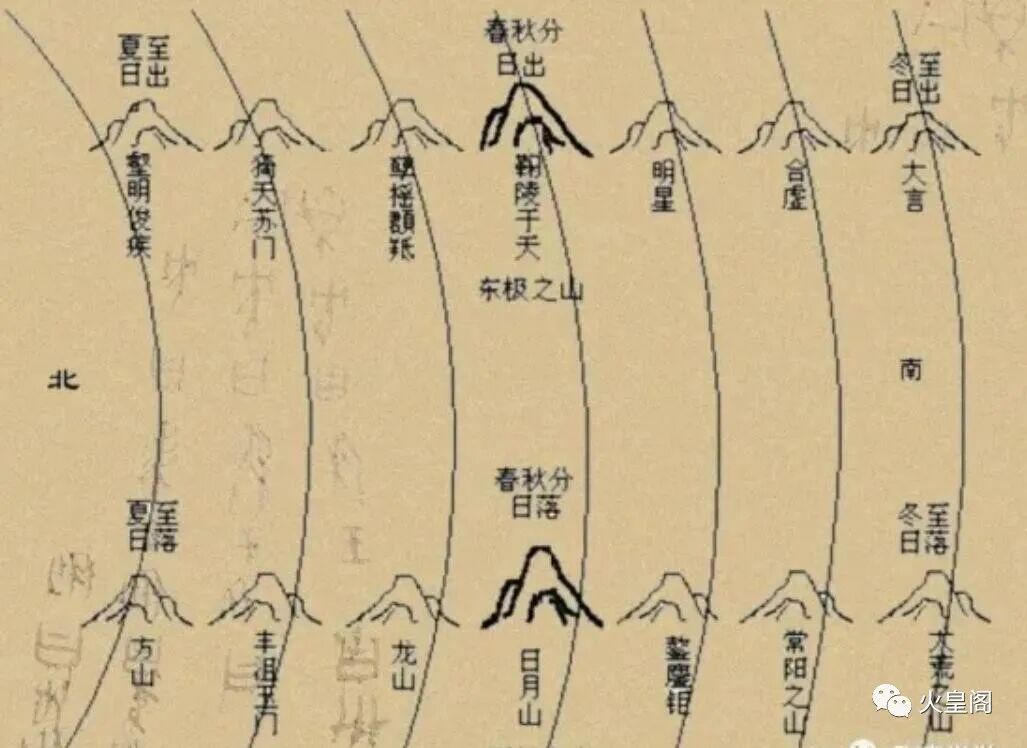 夏至
日出
春秋分
日出
冬至
日出
壑明俊疾
猗天苏门
孽摇頵羝
鞠陵于天
明星
合虚
大言
东极之山
北
南
夏至
日落
春秋分
日落
冬至
日落
方山
丰沮玉门
龙山
日月山
鏖鏊钜
常阳之山
大荒之山
火皇阁